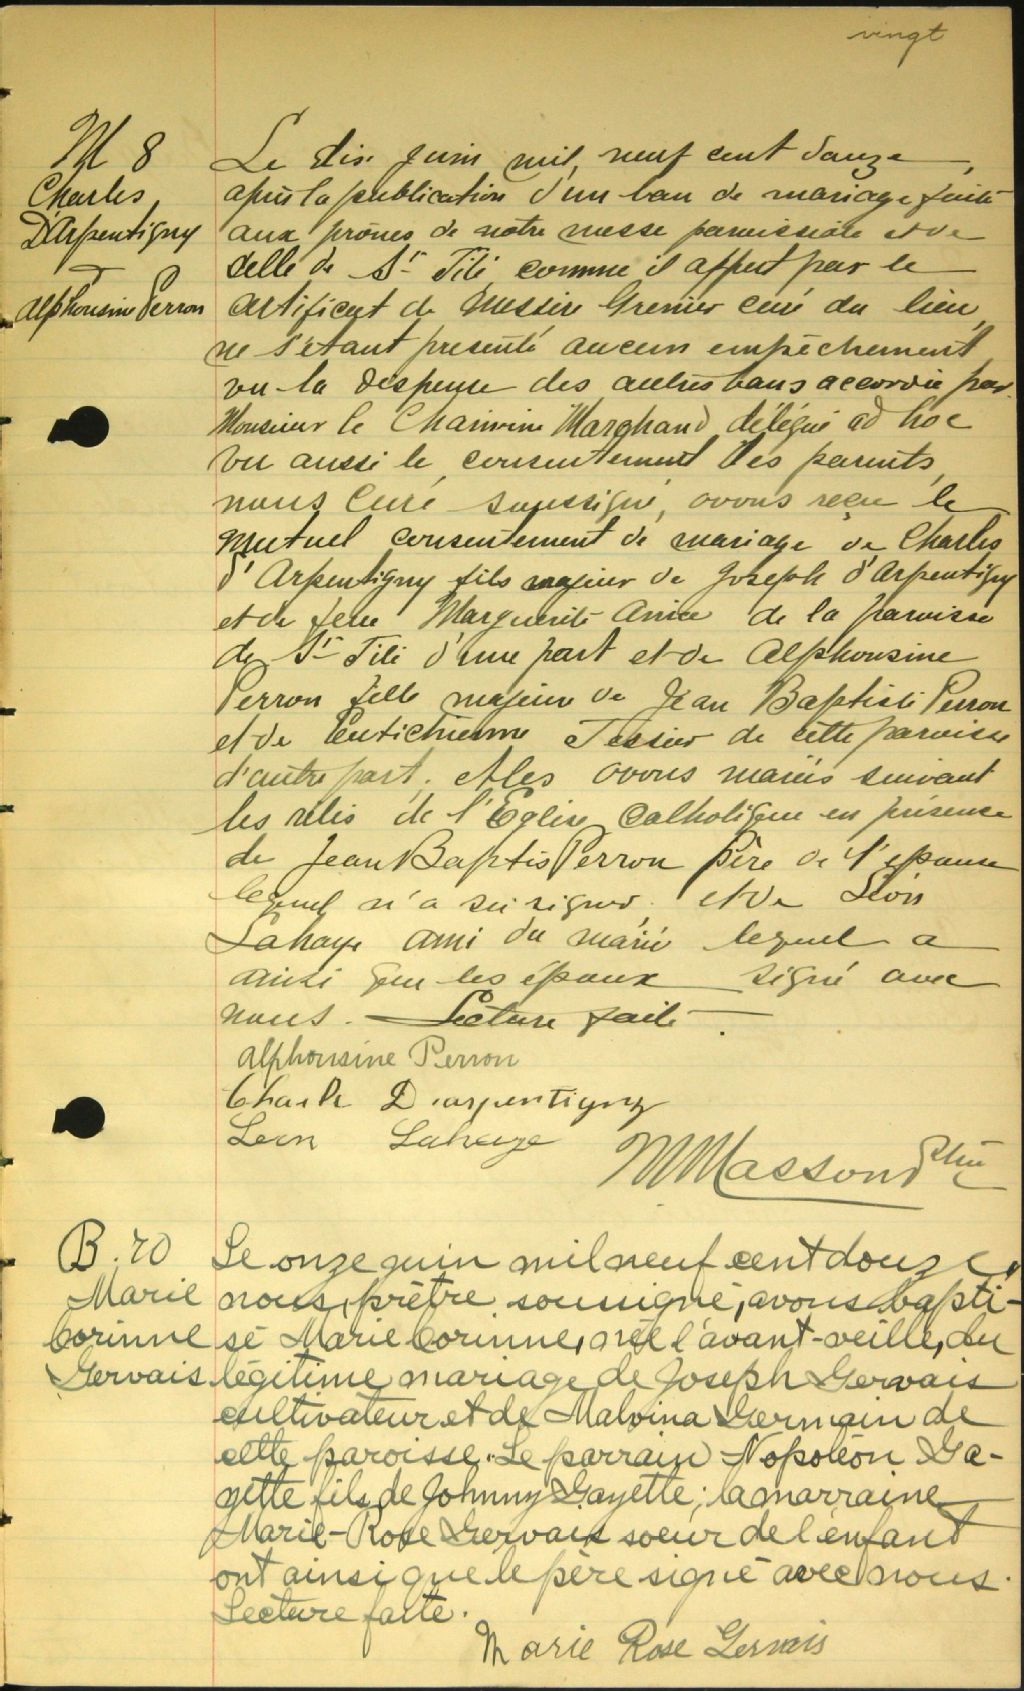 vingt
M 8
Charles
D'Arpentigny
&
Alphonsine Perron
Le dix juin mil neuf cent douze,
après la publication d'un ban de mariage faite
aux prônes de notre messe paroissiale et de
celle de St Tite comme il appert par le
certificat de Messire Grenier curé du lieu,
ne s'étant présenté aucun empêchement
vu la dispense des autres bans accordée par
Monsieur le Chanoine Marchand, délégué ad hoc
vu aussi le consentement des parents,
nous Curé soussigné, avons reçu le
mutuel consentement de mariage de Charles
d'Arpentigny fils majeur de Joseph d'Arpentigny
et de feue Marguerite de la paroisse
de St Tite d'une part et de Alphonsine
Perron fille majeure de Jean Baptiste Perron
et de Tessier de cette paroisse
d'autre part, et les avons mariés suivant
les rites de l'Eglise Catholique en présence
de Jean Baptis Perron père de l'épouse
lequel n'a su signer, et de Léon
Lahaye ami du marié lequel a
ainsi que les époux signé avec
nous. Lecture faite.
Alphonsine Perron
Charle Darpentigny
Leon Lahaye
Masson Ptre
B. 20
Marie
Corinne
Gervais
Le onze juin mil neuf cent douze,
nous, prêtre soussigné, avons bapti-
sé Marie Corinne, née l'avant-veille, du
légitime mariage de Joseph Gervais
cultivateur et de Malvina Germain de
cette paroisse. Le parrain Napoléon Ga-
yette fils de Johnny Gayette; la marraine
Marie-Rose Gervais soeur de l'enfant
ont ainsi que le père signé avec nous.
Lecture faite.
Marie Rose Gervais